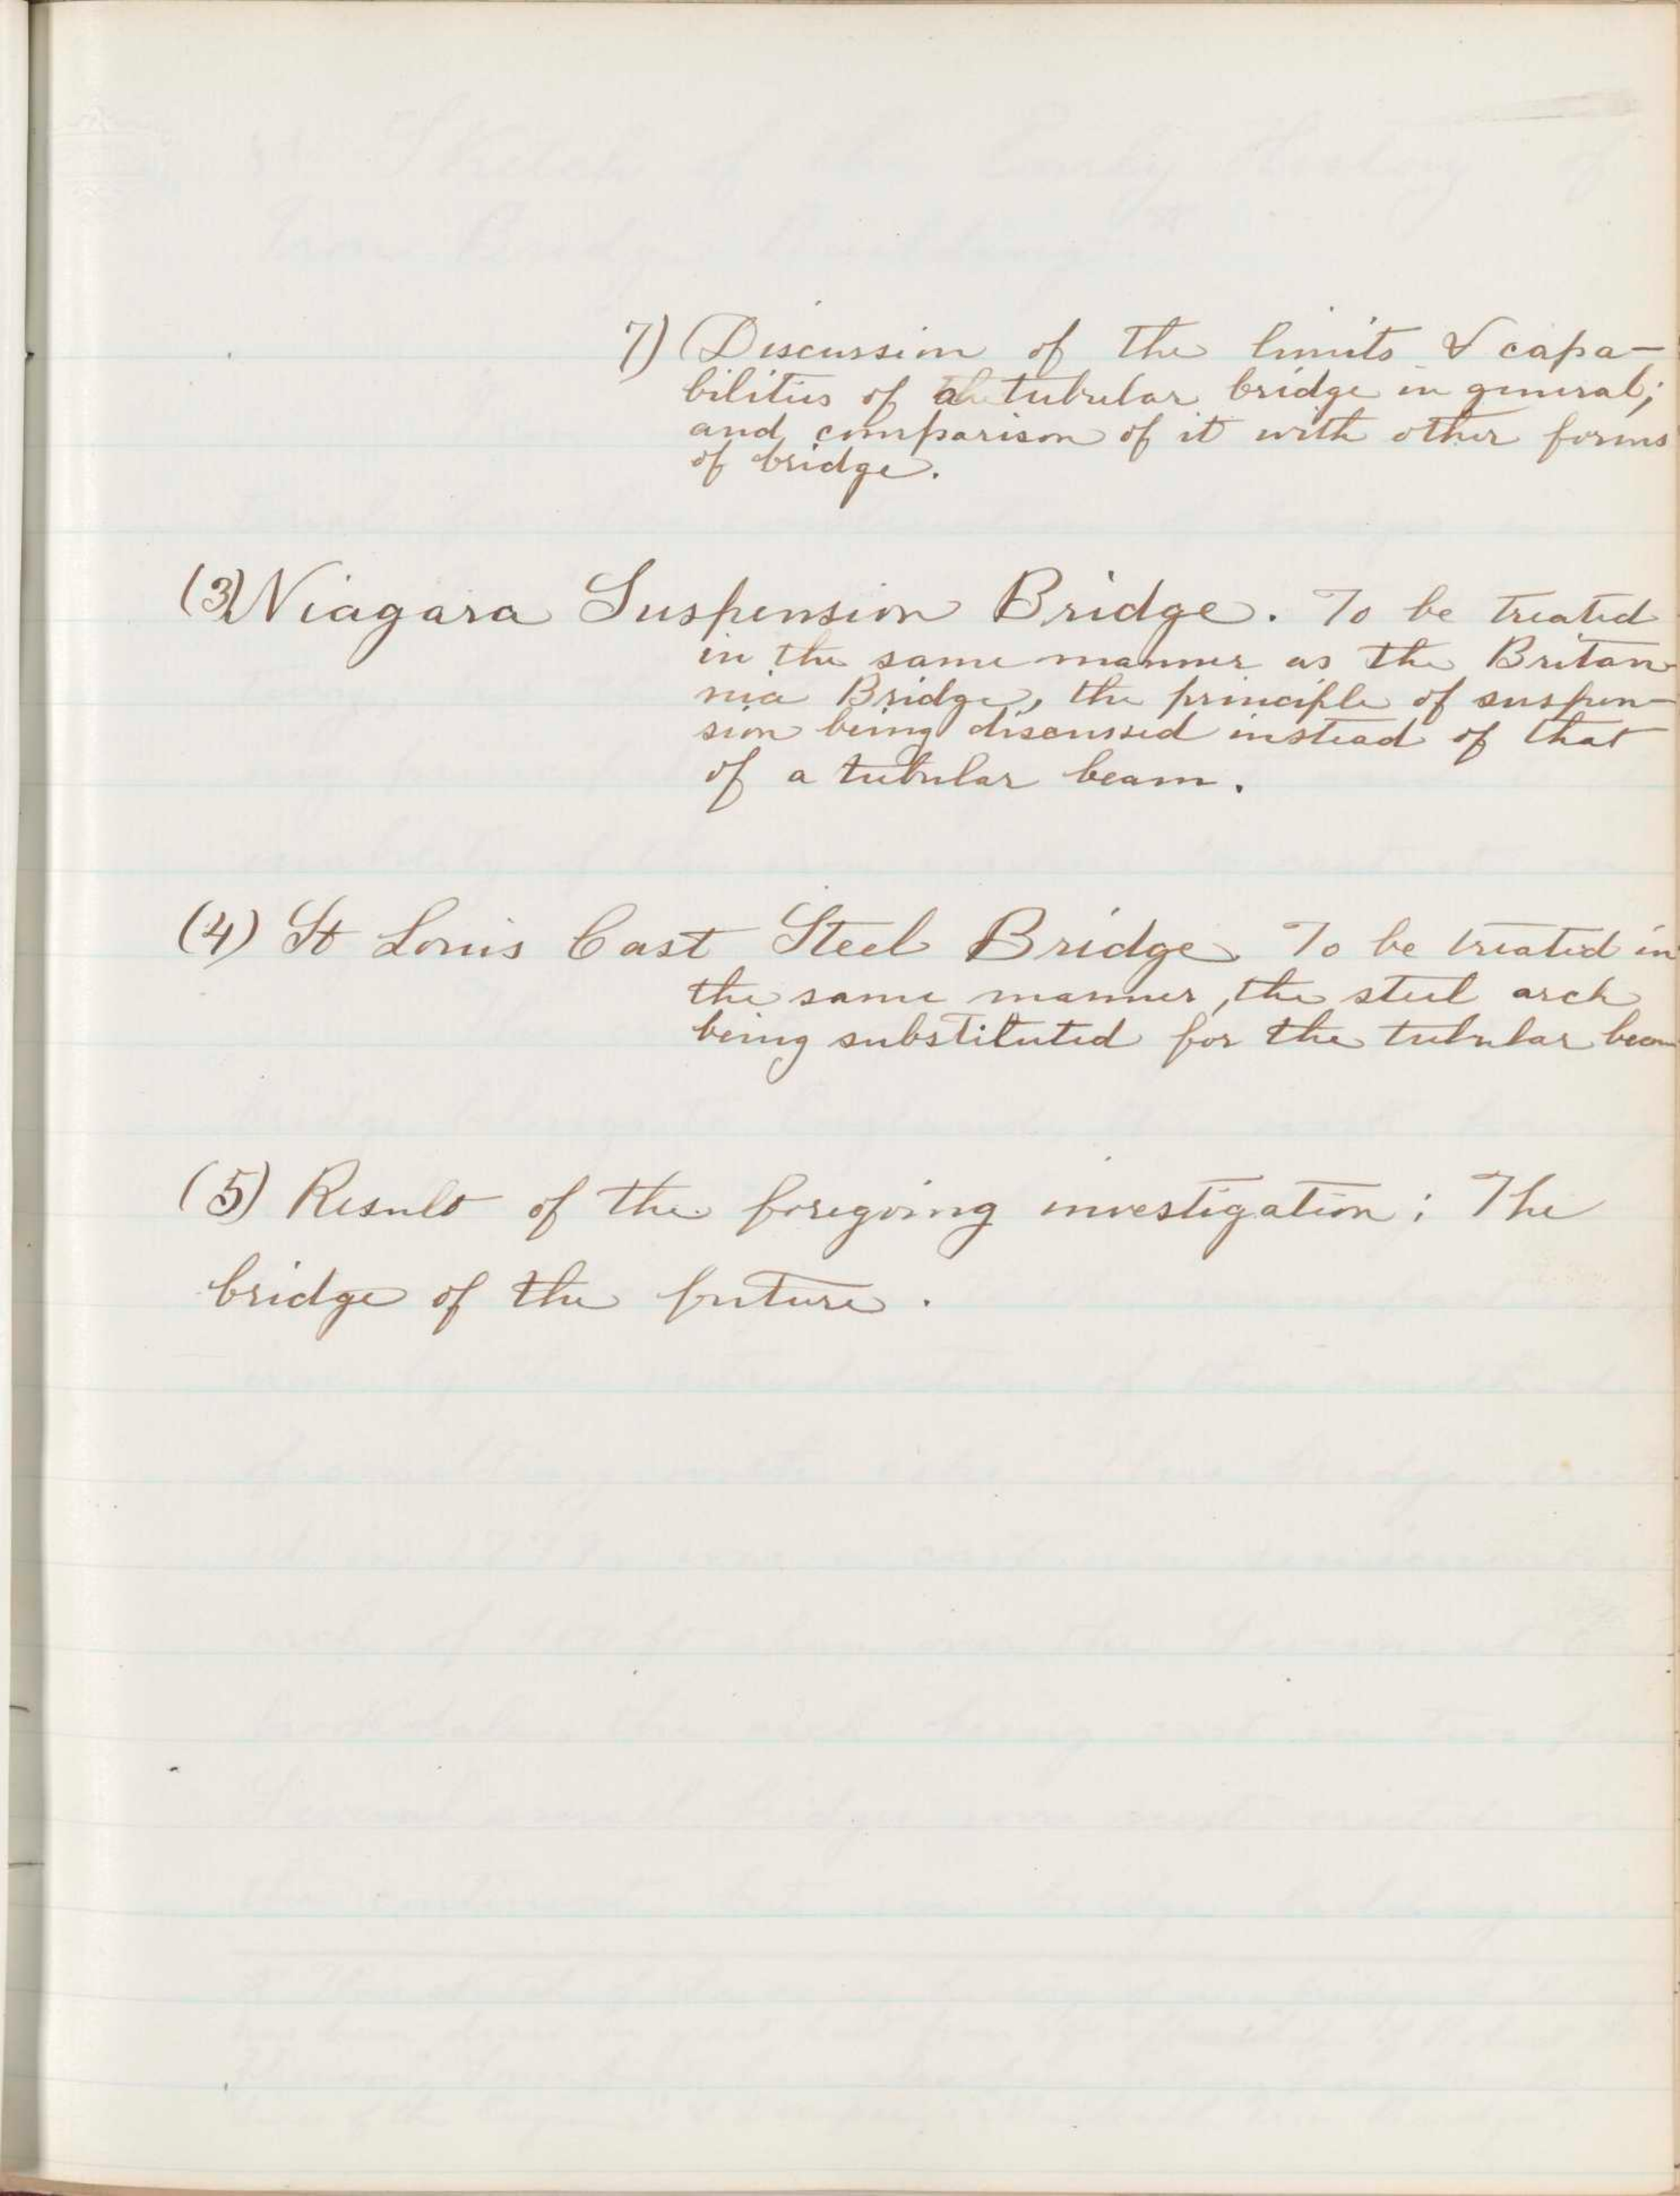 7) Discussion of the limits & capa-
bilities of a tubular bridge in general;
and comparison of it with other forms
of bridge.
(3) Niagara Suspension Bridge. To be treated
in the same manner as the Britan-
nia Bridge, the principle of suspen-
sion being discussed instead of that
of a tubular beam.
(4) St Louis Cast Steel Bridge. To be treated in
the same manner, the steel arch
being substituted for the tubular beam
(5) Result of the foregoing investigation; The
bridge of the future.